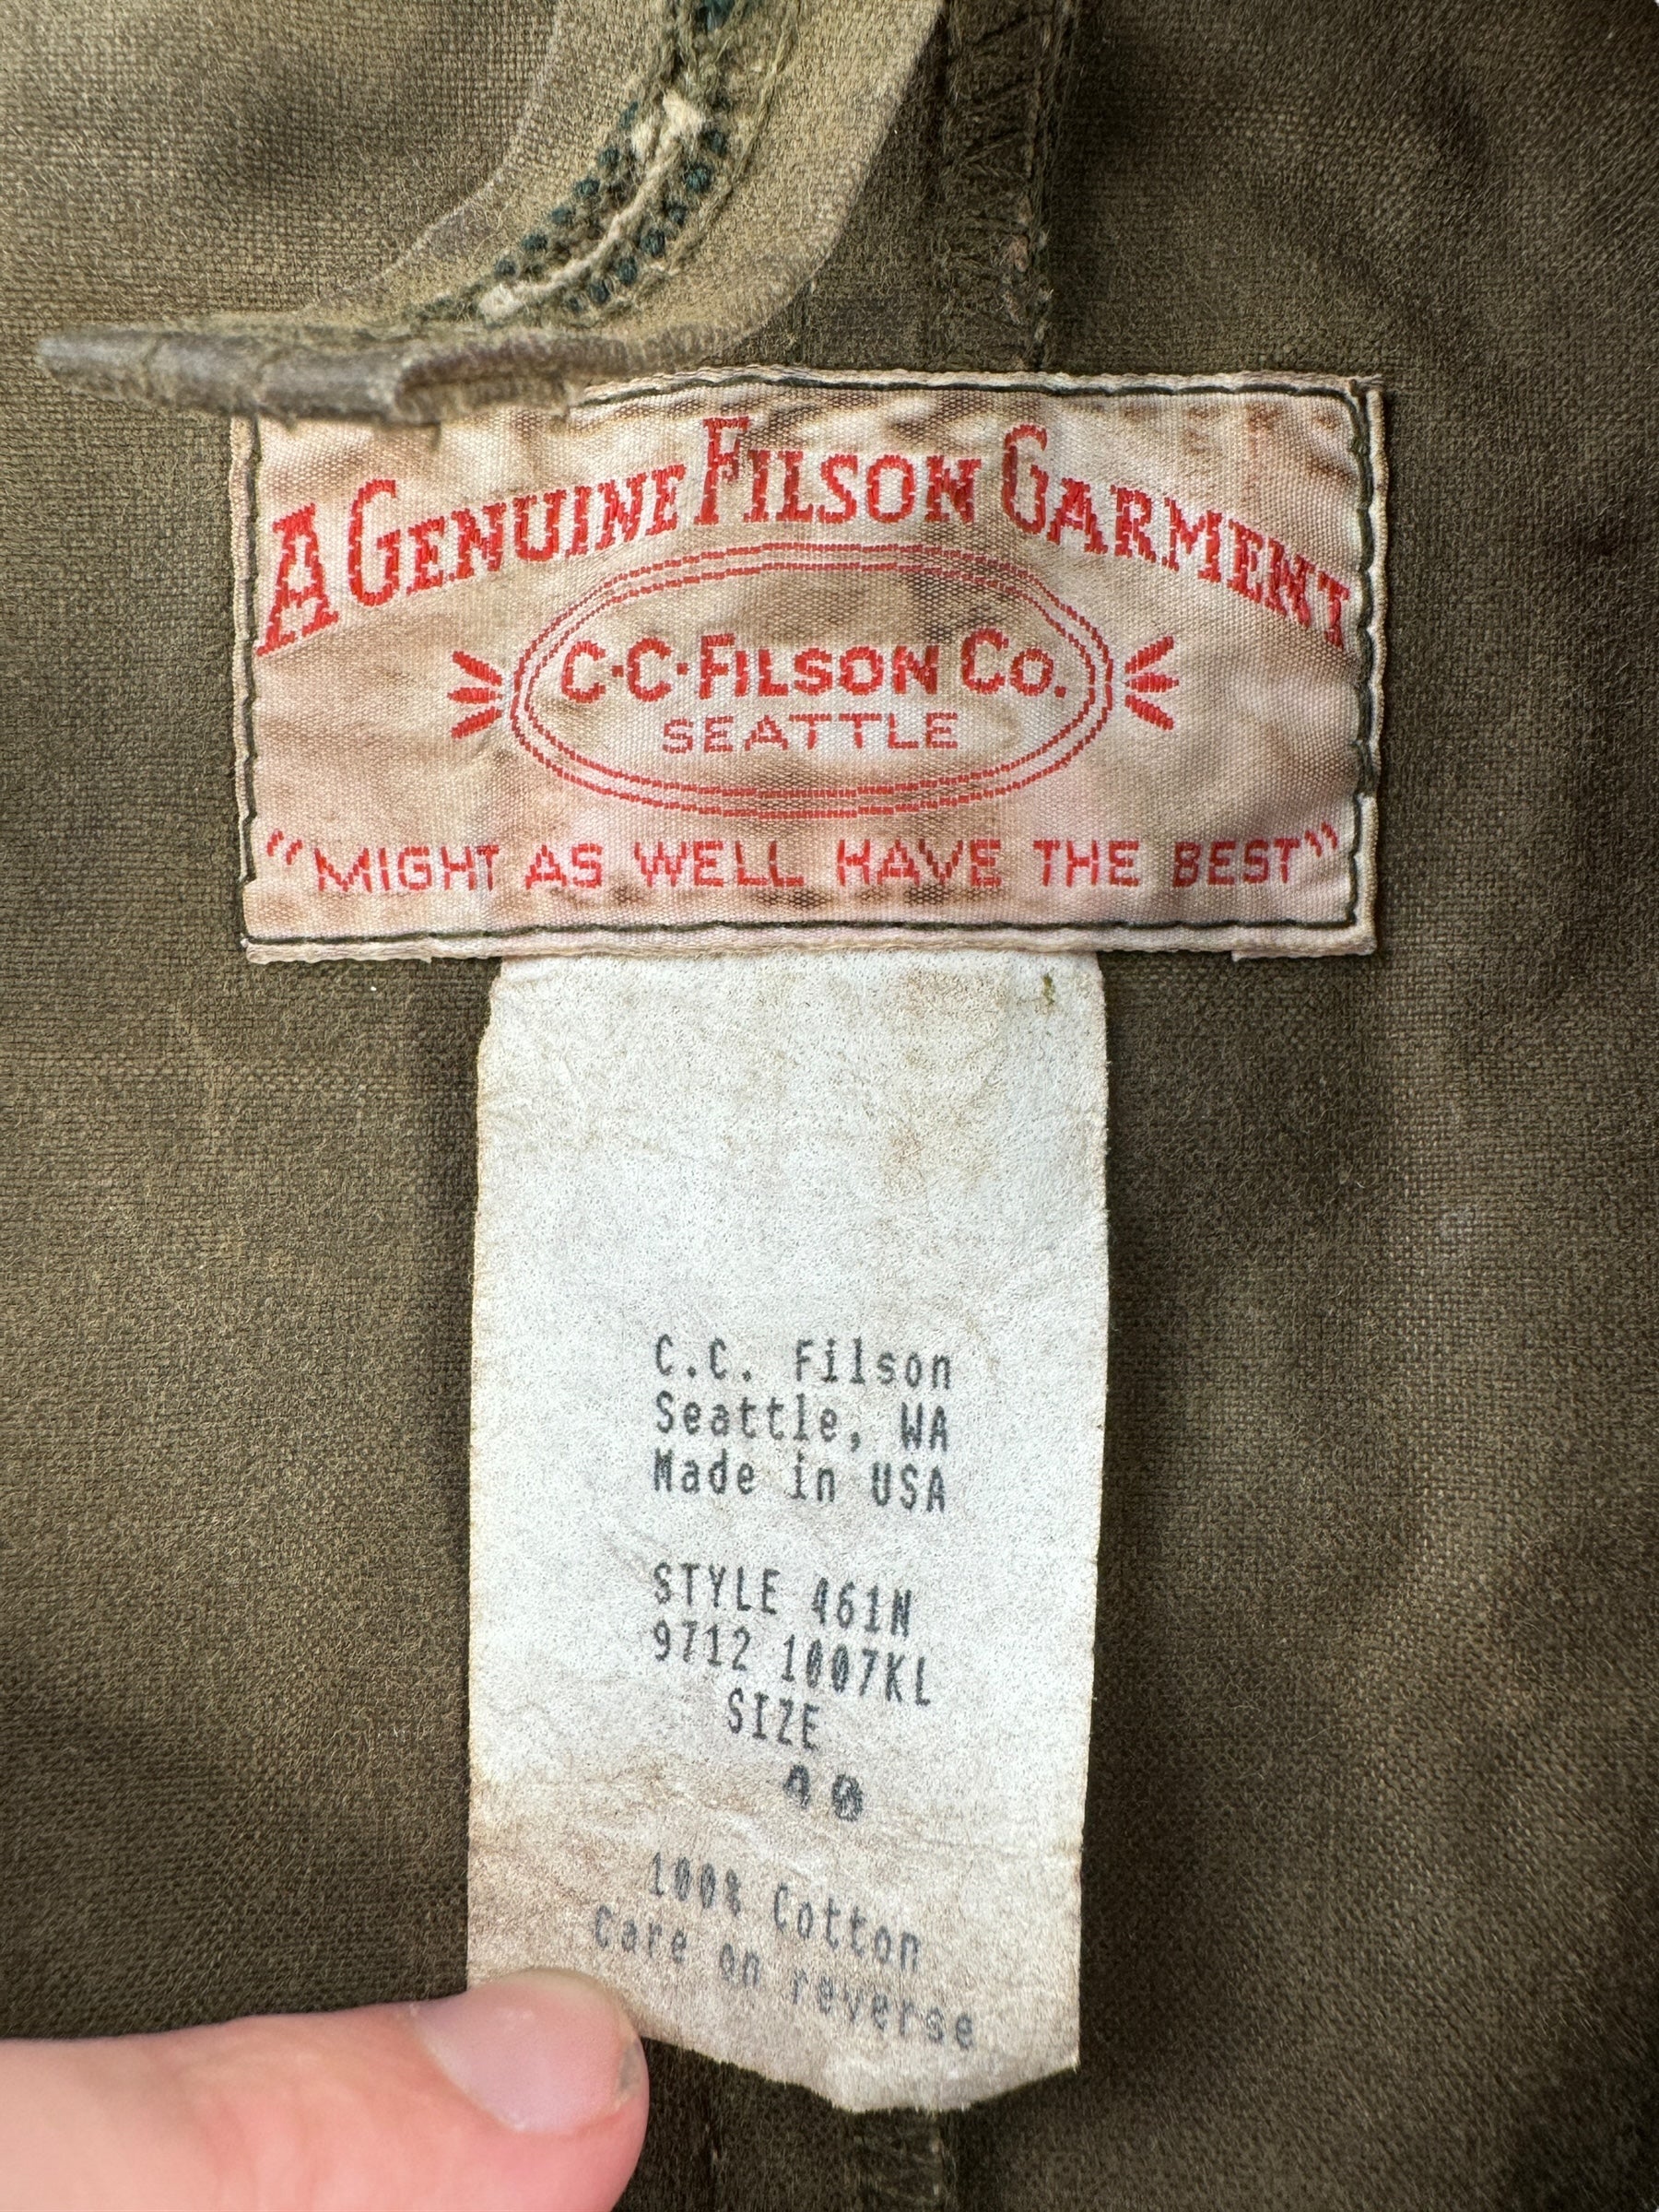 A GENUINE FILSON GARMENT
C·C·FILSON CO.
SEATTLE
"MIGHT AS WELL HAVE THE BEST"
C.C. Filson
Seattle, WA
Made in USA
STYLE 461N
9712 1007KL
SIZE
40
100% Cotton
Care on reverse